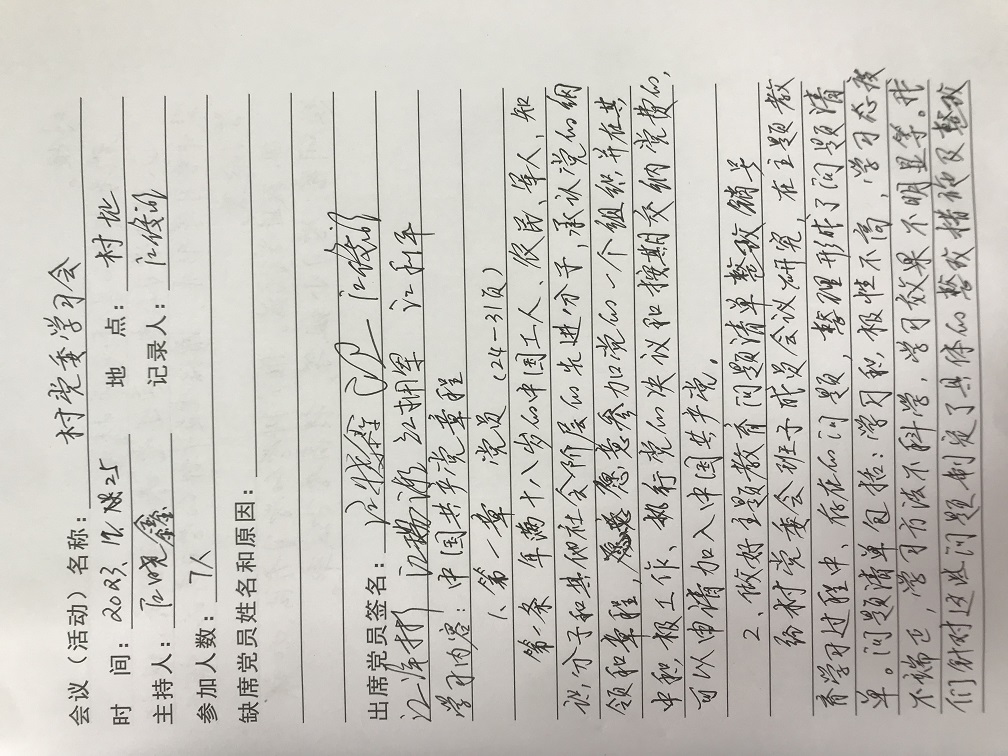 会议（活动）名称：村党委学习会
时 间：2023. 12. 25 地 点：村址
主持人：江晓鑫 记录人：江俊
参加人数：7人
缺席党员姓名和原因：
出席党员签名：江晓鑫 江俊
江 江 江拥军 江利平
学习内容：中国共产党章程
1、第一章 党员 (24—31页)
第一条 年满十八岁的中国工人、农民、军人、知
识分子和其他社会阶层的先进分子，承认党的纲
领和章程，愿意参加党的一个组织并在其
中积极工作、执行党的决议和按期交纳党费的，
可以申请加入中国共产党。
2、做好主题教育问题清单整改销号
我村党委会班子成员会议研究，在主题教
育学习过程中、存在的问题，整理形成了问题清
单。问题清单包括：学习积极性不高，学习态度
不端正，学习方法不科学，学习效果不明显等。我
们针对这些问题制定了具体的整改措施及整改